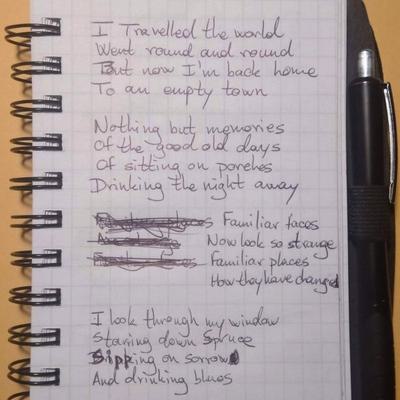 I Travelled the world
Went round and round
But now I'm back home
To an empty town
Nothing but memories
Of the good old days
Of sitting on porches
Drinking the night away
Familiar faces
Now look so strange
Familiar places
How they have changed
I look through my window
Starring down Spruce
Sipping on sorrow
And drinking blues